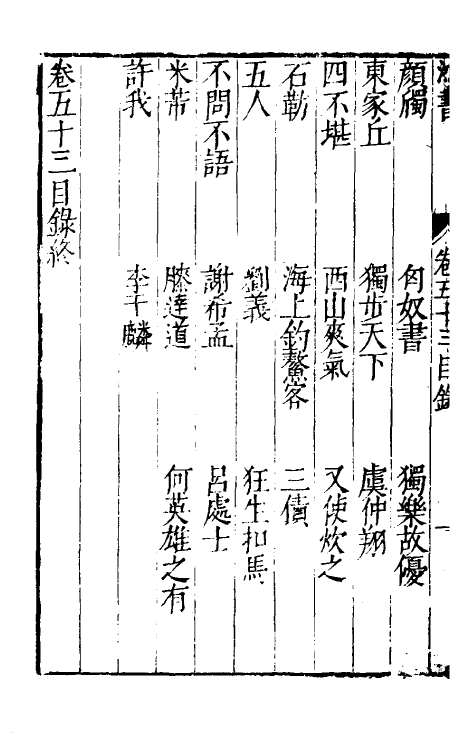 卷五十三目錄
顏斶　匈奴書　獨樂故優
東家丘　獨步天下　虞仲翔
四不堪　西山爽氣　又使炊之
石勒　海上釣鰲客　三債
五人　劉義　狂生扣馬
不問不語　謝希孟　呂處士
米芾　滕達道　何英雄之有
許我　李于麟
卷五十三目錄終